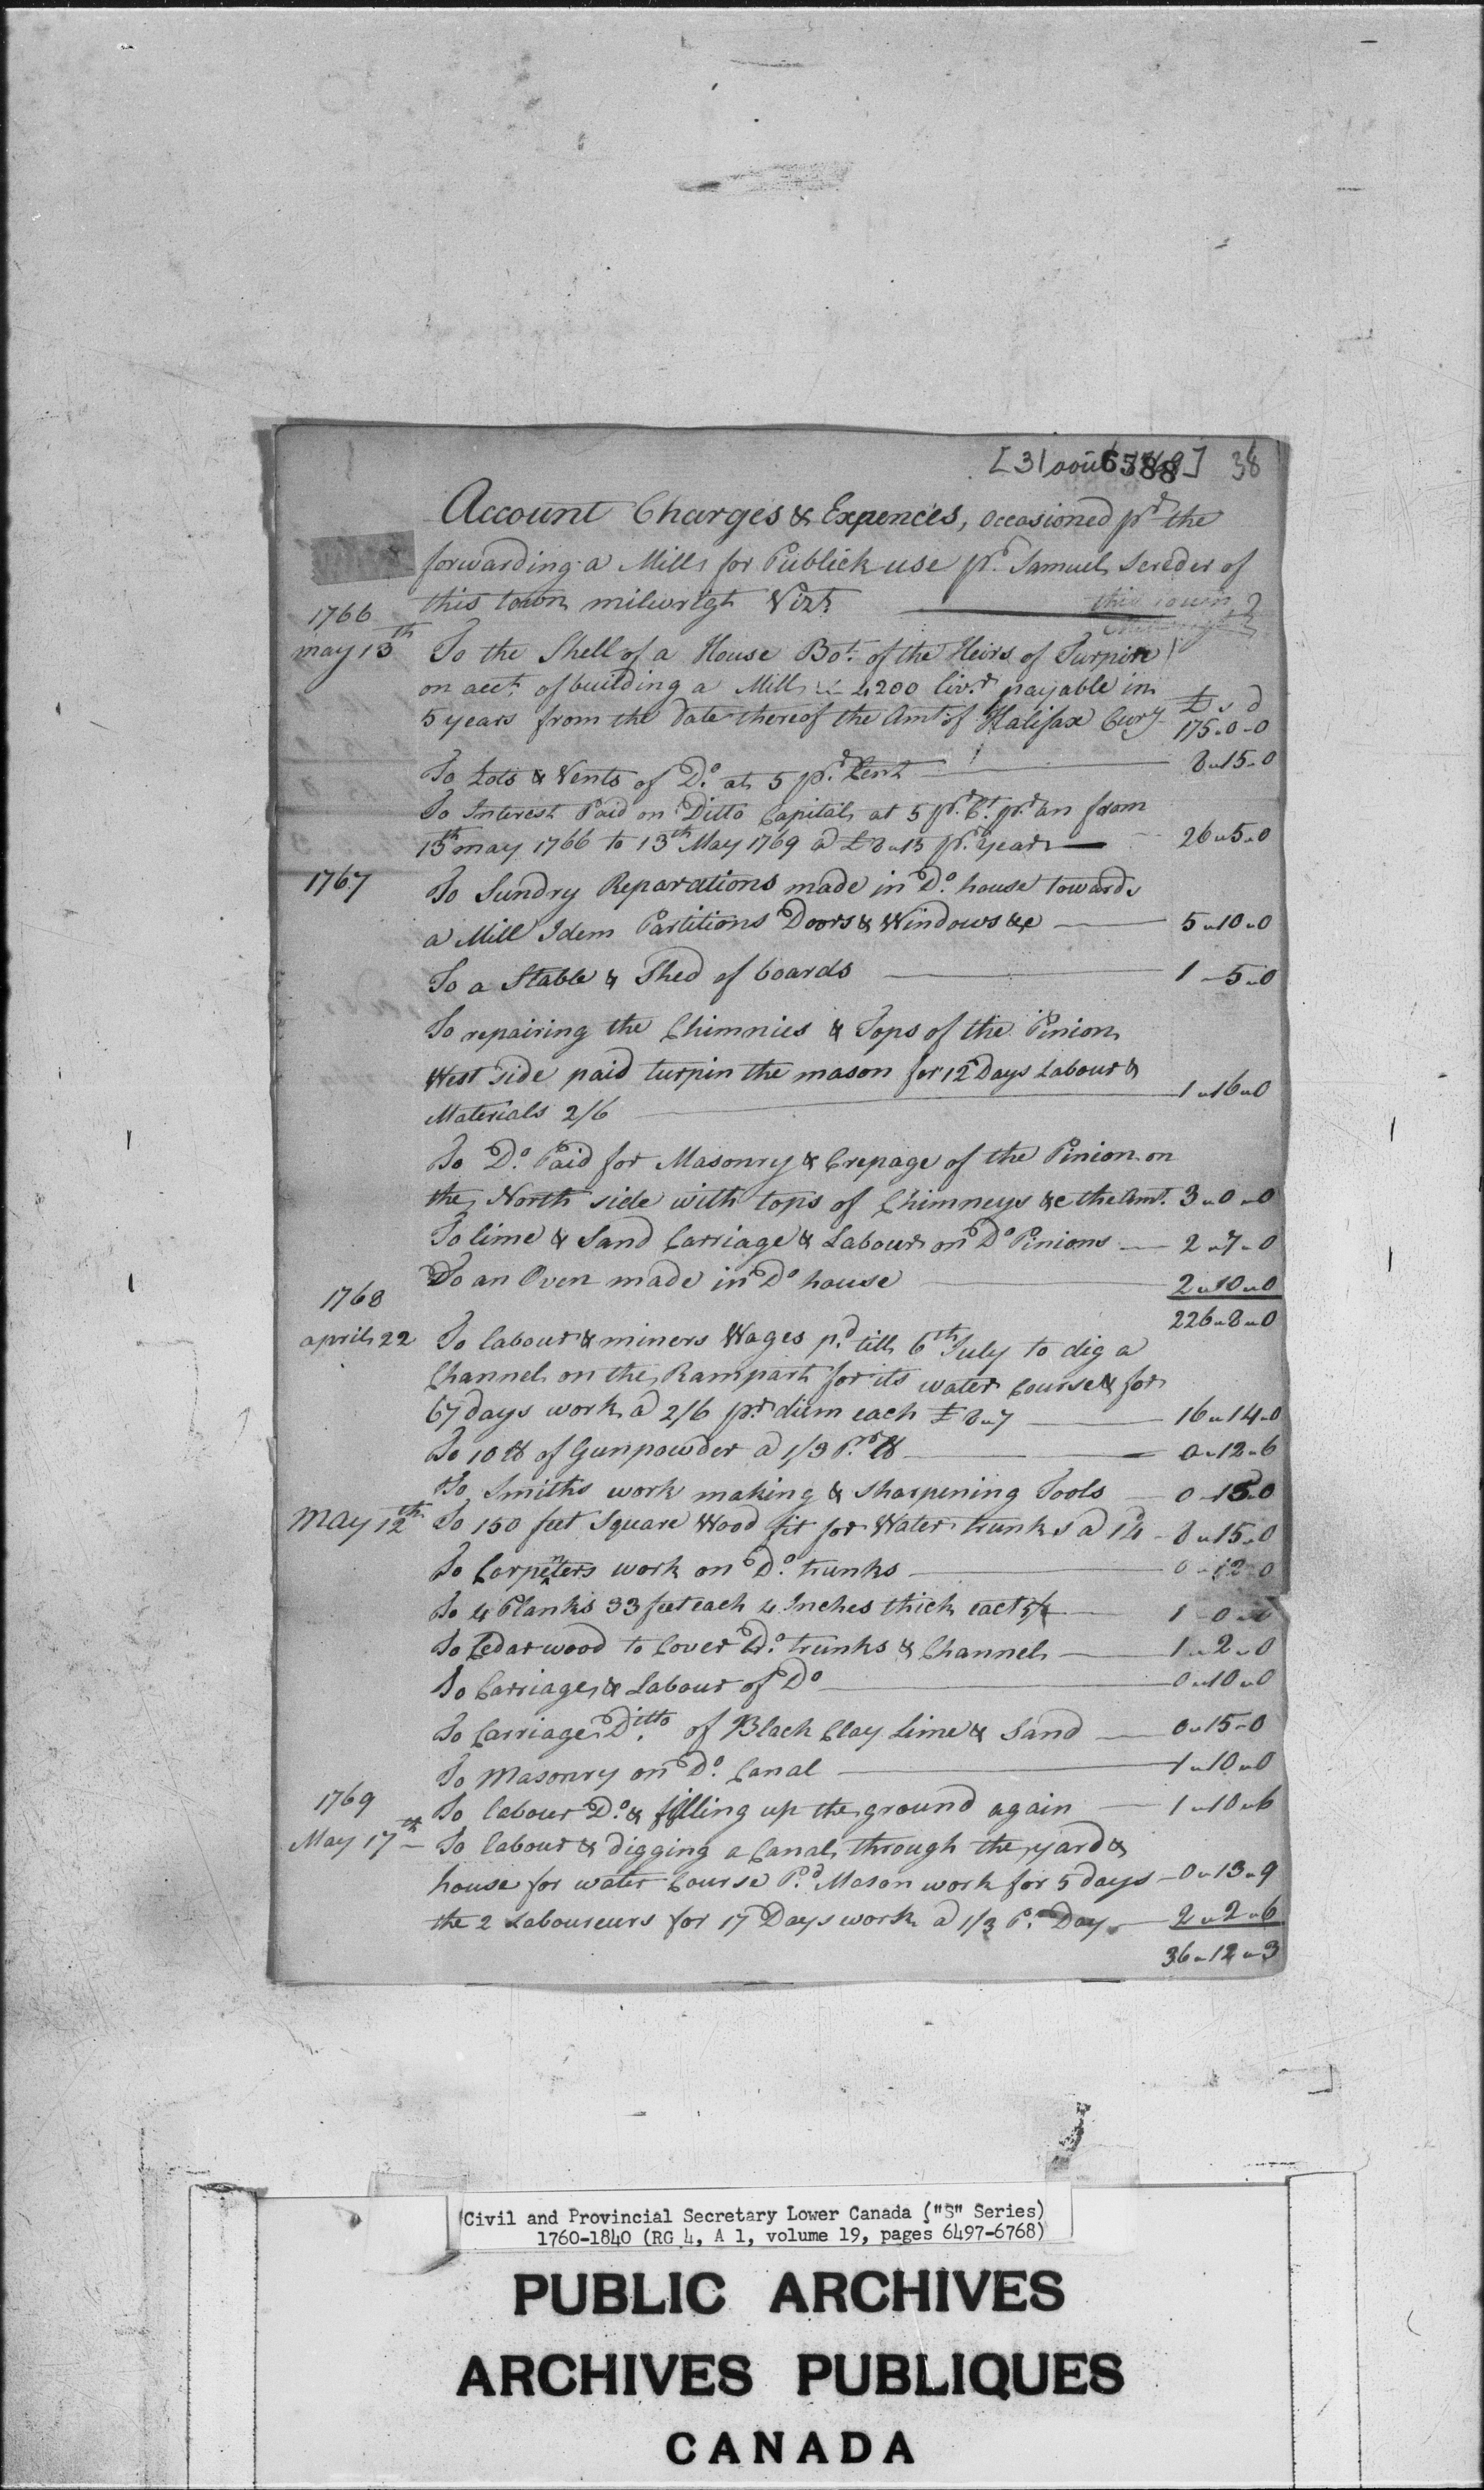 [31 août 6588] 38
Account Charges & Expences, occasioned pr the
forwarding a Mill for Publick use pr. Samuel Sereder of
this town milwrigt Vizt
this town
1766
may 13th To the Shell of a House Bot. of the Heirs of Turpin
on acct. of building a Mill 4200 livrs payable in
5 years from the date thereof the Amt. of Halifax Cury £ s d
175-0-0
To Lots & Vents of Do. at 5 pr. Cent 8-15-0
To Interest Paid on Ditto Capital at 5 pr. Ct. pr. an from
13th may 1766 to 13th May 1769 a £8-15 pr. Year 26-5-0
1767 To Sundry Reparations made in Do. house towards
a Mill Idem Partitions Doors & Windows &c 5-10-0
To a Stable & Shed of boards 1-5-0
To repairing the Chimnies & Tops of the Pinion
West side paid turpin the mason for 12 Days Labour &
Materials 2/6 1-16-0
To Do. Paid for Masonry & Crepage of the Pinion on
the North side with tops of Chimneys &c the Amt. 3-0-0
To lime & Sand Carriage & Labour on Do Pinions 2-7-0
To an Oven made in Do house 2-10-0
226-8-0
1768
april 22 To labour & miners Wages pd. till 6th July to dig a
Channel on the Rampart for its water Course & for
67 days work a 2/6 pr. dium each £8-7 16-14-0
To 10 lb of Gunpowder a 1/3 Pr. lb 0-12-6
To Smiths work making & sharpening Tools 0-15-0
May 12th To 150 feet Square Wood fit for Water trunks a 14d 8-15-0
To Carpenters work on Do. trunks 0-12-0
To 4 Planks 33 feet each 4 Inches thick each 5/ 1-0-0
To Cedar wood to Cover Do. trunks & Channel 1-2-0
To Carriage & Labour of Do 0-10-0
To Carriage Ditto. of Black Clay Lime & Sand 0-15-0
To Masonry on Do. Canal 1-10-0
1769 To labour Do. & filling up the ground again 1-10-6
May 17th To labour & digging a Canal through the yard &
house for water Course Pd. Mason work for 5 days 0-13-9
the 2 Laboureurs for 17 Days work a 1/3 P. Day 2-2-6
36-12-3
Civil and Provincial Secretary Lower Canada ("S" Series)
1760-1840 (RG 4, A 1, volume 19, pages 6497-6768)
PUBLIC ARCHIVES
ARCHIVES PUBLIQUES
CANADA